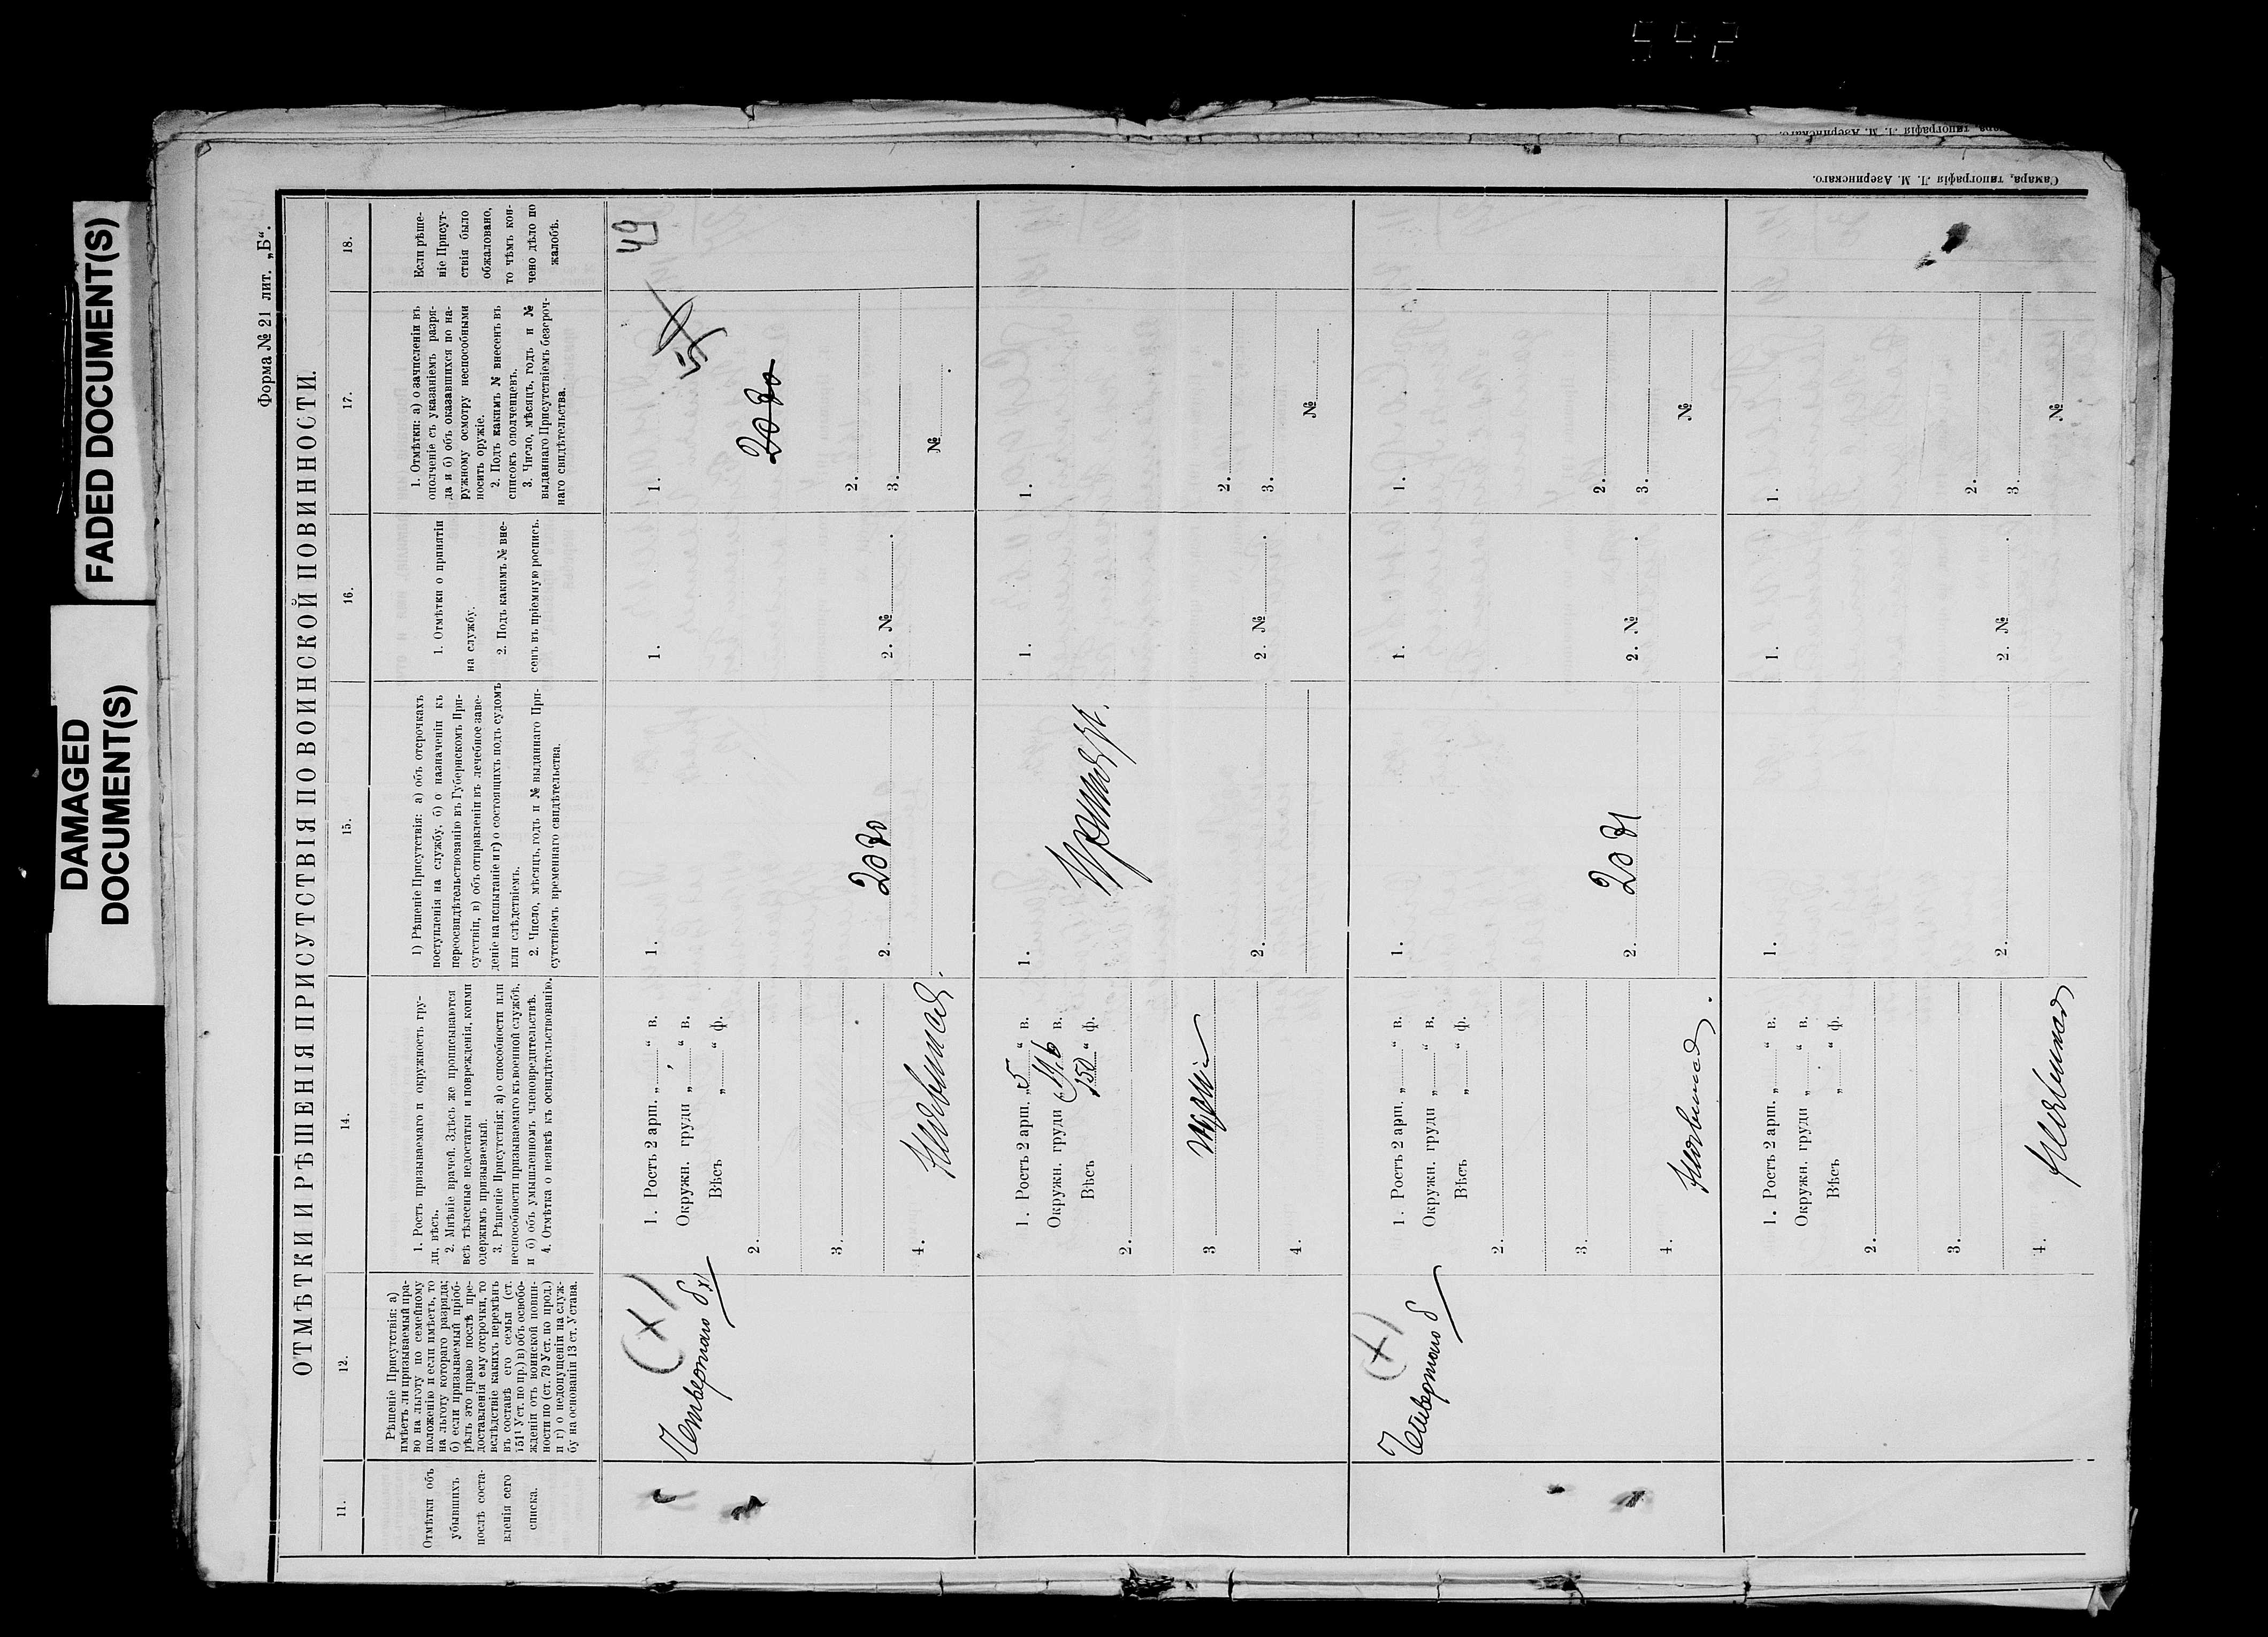 FADED DOCUMENT(S)
DAMAGED
DOCUMENT(S)
592
Самара, типографія Л. М. Азеринскаго.
Форма № 21 лит. „Б“.
ОТМѢТКИ И РѢШЕНІЯ ПРИСУТСТВІЯ ПО ВОИНСКОЙ ПОВИННОСТИ.
11.
12.
14.
15.
16.
17.
18.
Отмѣтки объ
убывшихъ
послѣ соста-
вленія сего
списка.
Рѣшеніе Присутствія: а)
имѣетъ ли призываемый пра-
во на льготу по семейному
положенію и если имѣетъ, то
на льготу котораго разряда;
б) если призываемый пріоб-
рѣлъ это право послѣ пре-
доставленія ему отсрочки, то
вслѣдствіе какихъ перемѣнъ
въ составѣ его семьи (ст.
151¹ Уст. по пр.) в) объ освобо-
жденіи отъ воинской повин-
ности по (ст. 79 Уст. по прод.)
и г) о недопущеніи на служ-
бу на основаніи 13 ст. Устава.
1. Ростъ призываемаго и окружность гру-
ди, вѣсъ.
2. Мнѣніе врачей. Здѣсь же прописываются
всѣ тѣлесные недостатки и поврежденія, коими
одержимъ призываемый.
3. Рѣшеніе Присутствія: а) о способности или
неспособности призываемаго къ военной службѣ,
и б) объ умышленномъ членовредительствѣ.
4. Отмѣтка о неявкѣ къ освидѣтельствованію.
1) Рѣшеніе Присутствія: а) объ отсрочкахъ
поступленія на службу, б) о назначеніи къ
переосвидѣтельствованію въ Губернскомъ При-
сутствіи, в) объ отправленіи въ лечебное заве-
деніе на испытаніе и г) о состоящихъ подъ судомъ
или слѣдствіемъ.
2. Число, мѣсяцъ, годъ и № выданнаго При-
сутствіемъ временнаго свидѣтельства.
1. Отмѣтки о принятіи
на службу.
2. Подъ какимъ № вне-
сенъ въ пріемную роспись.
1. Отмѣтки: а) о зачисленіи въ
ополченіе съ указаніемъ разря-
да и б) объ оказавшихся по на-
ружному осмотру неспособными
носить оружіе.
2. Подъ какимъ № внесенъ въ
списокъ ополченцевъ.
3. Число, мѣсяцъ, годъ и №
выданнаго Присутствіемъ безсроч-
наго свидѣтельства.
Если рѣше-
ніе Присут-
ствія было
обжаловано,
то чѣмъ кон-
чено дѣло по
жалобѣ.
(х)
Четвертаго
1. Ростъ 2 арш. „ “ в.
Окружн. груди „ “ в.
Вѣсъ „ “ ф.
2.
3.
4.
1.
2. 2070
1.
2. №
1.
2070
2.
3.
№
49
1. Ростъ 2 арш. „5 “ в.
Окружн. груди в.
Вѣсъ 150 “ ф.
2.
3
4.
1.
2.
1.
2. №
1.
2.
3.
№
(х)
Четвертаго
1. Ростъ 2 арш. „ “ в.
Окружн. груди „ “ в.
Вѣсъ „ “ ф.
2.
3.
4.
1.
2. 2071
1.
2. №
1.
2.
3.
№
1. Ростъ 2 арш. „ “ в.
Окружн. груди „ “ в.
Вѣсъ „ “ ф.
2.
3.
4.
1.
2.
1.
2. №
1.
2.
3.
№